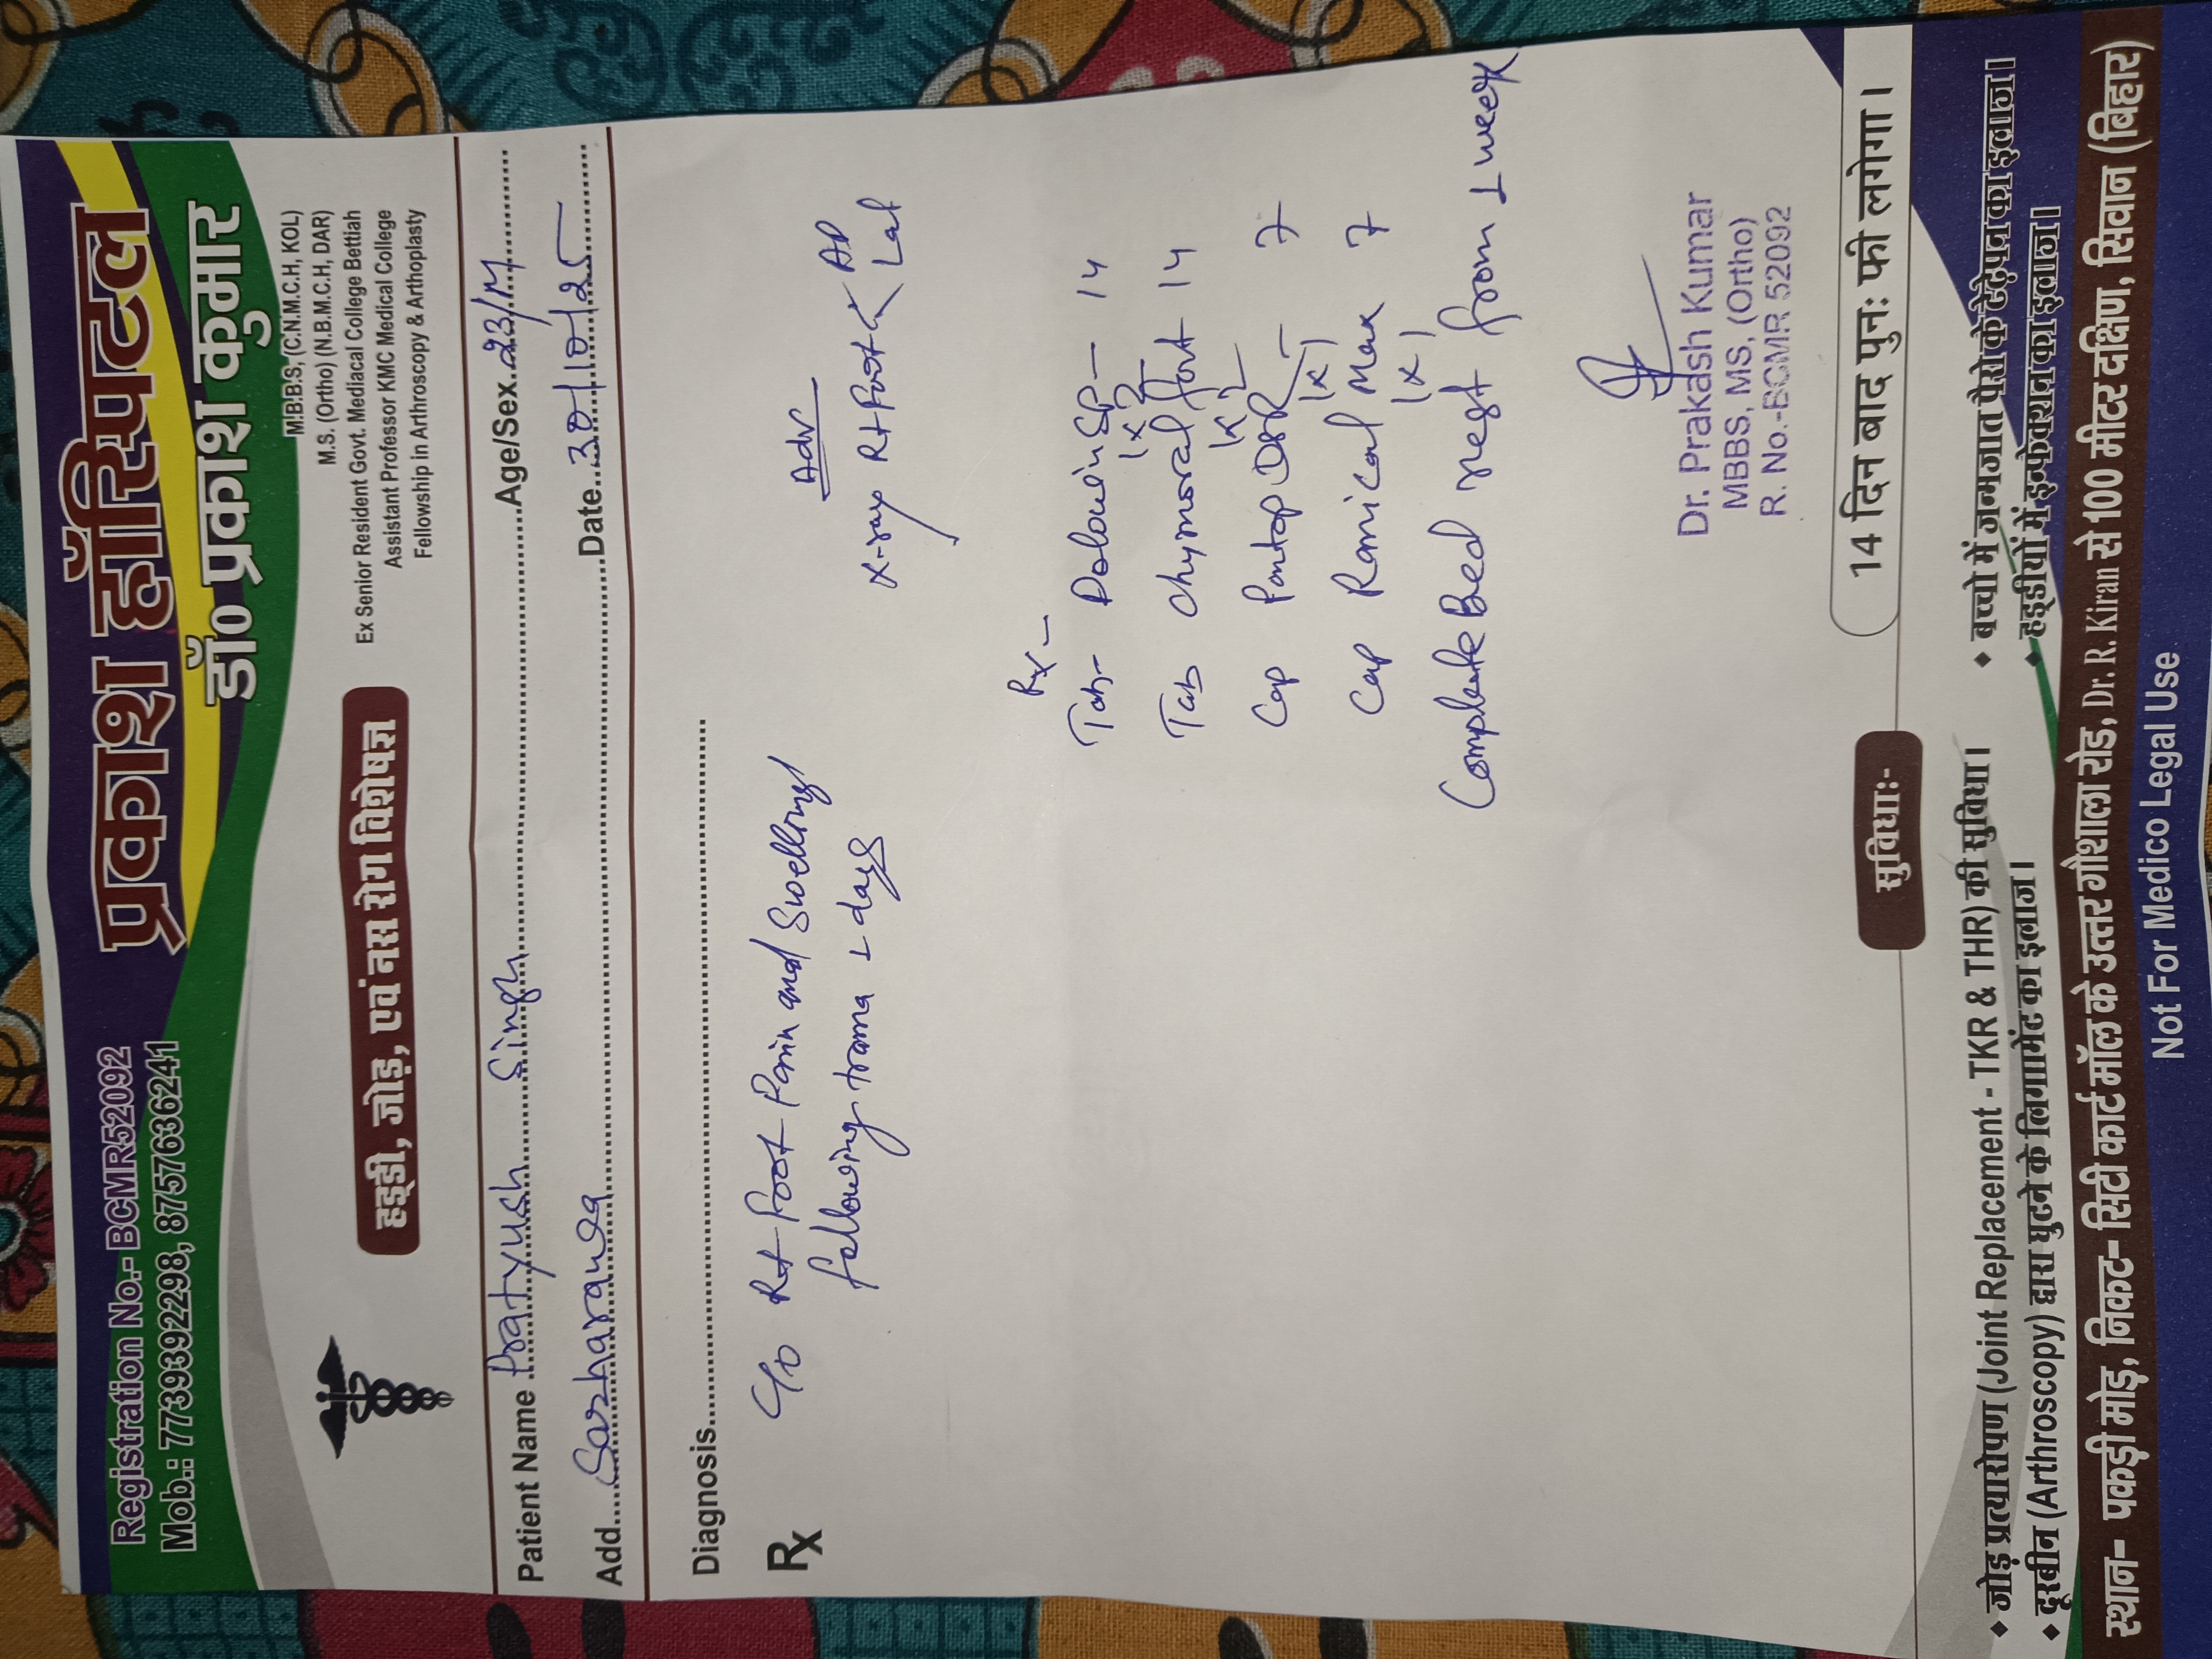 प्रकाश हॉस्पिटल
डॉ० प्रकाश कुमार
Registration No.- BCMR52092
Mob.: 7739392298, 8757636241
M.B.B.S, (C.N.M.C.H, KOL)
M.S. (Ortho) (N.B.M.C.H, DAR)
Ex Senior Resident Govt. Mediacal College Bettiah
Assistant Professor KMC Medical College
Fellowship in Arthroscopy & Arthoplasty
हड्डी, जोड़, एवं नस रोग विशेषज्ञ
Patient Name Pratyush Singh Age/Sex. 23/M
Add.... Date.. 30/10/25
Diagnosis
Rx
C/o Rt foot Pain and Swelling
following trama 1 days
Adv
X-ray Rt foot < AP
Lat
Rx-
Tab- Dolowin SP - 14
1x2
Tab Chymoral fort 14
1x2
Cap Pantop DSR - 7
1x1
Cap Max 7
1x1
Complete Bed rest from 1 week
Dr. Prakash Kumar
MBBS, MS, (Ortho)
R. No.-BCMR 52092
14 दिन बाद पुनः फी लगेगा।
सुविधाः-
◆ जोड़ प्रत्यारोपण (Joint Replacement - TKR & THR) की सुविधा।
◆ दूरबीन (Arthroscopy) द्वारा घुटने के लिगामेंट का इलाज।
◆ बच्चो में जन्मजात पैरो के टेढ़ेपन का इलाज।
◆ हड्डीयों में इन्फेक्शन का इलाज।
स्थान- पकड़ी मोड़, निकट- सिटी कार्ट मॉल के उत्तर गौशाला रोड, Dr. R. Kiran से 100 मीटर दक्षिण, सिवान (बिहार)
Not For Medico Legal Use